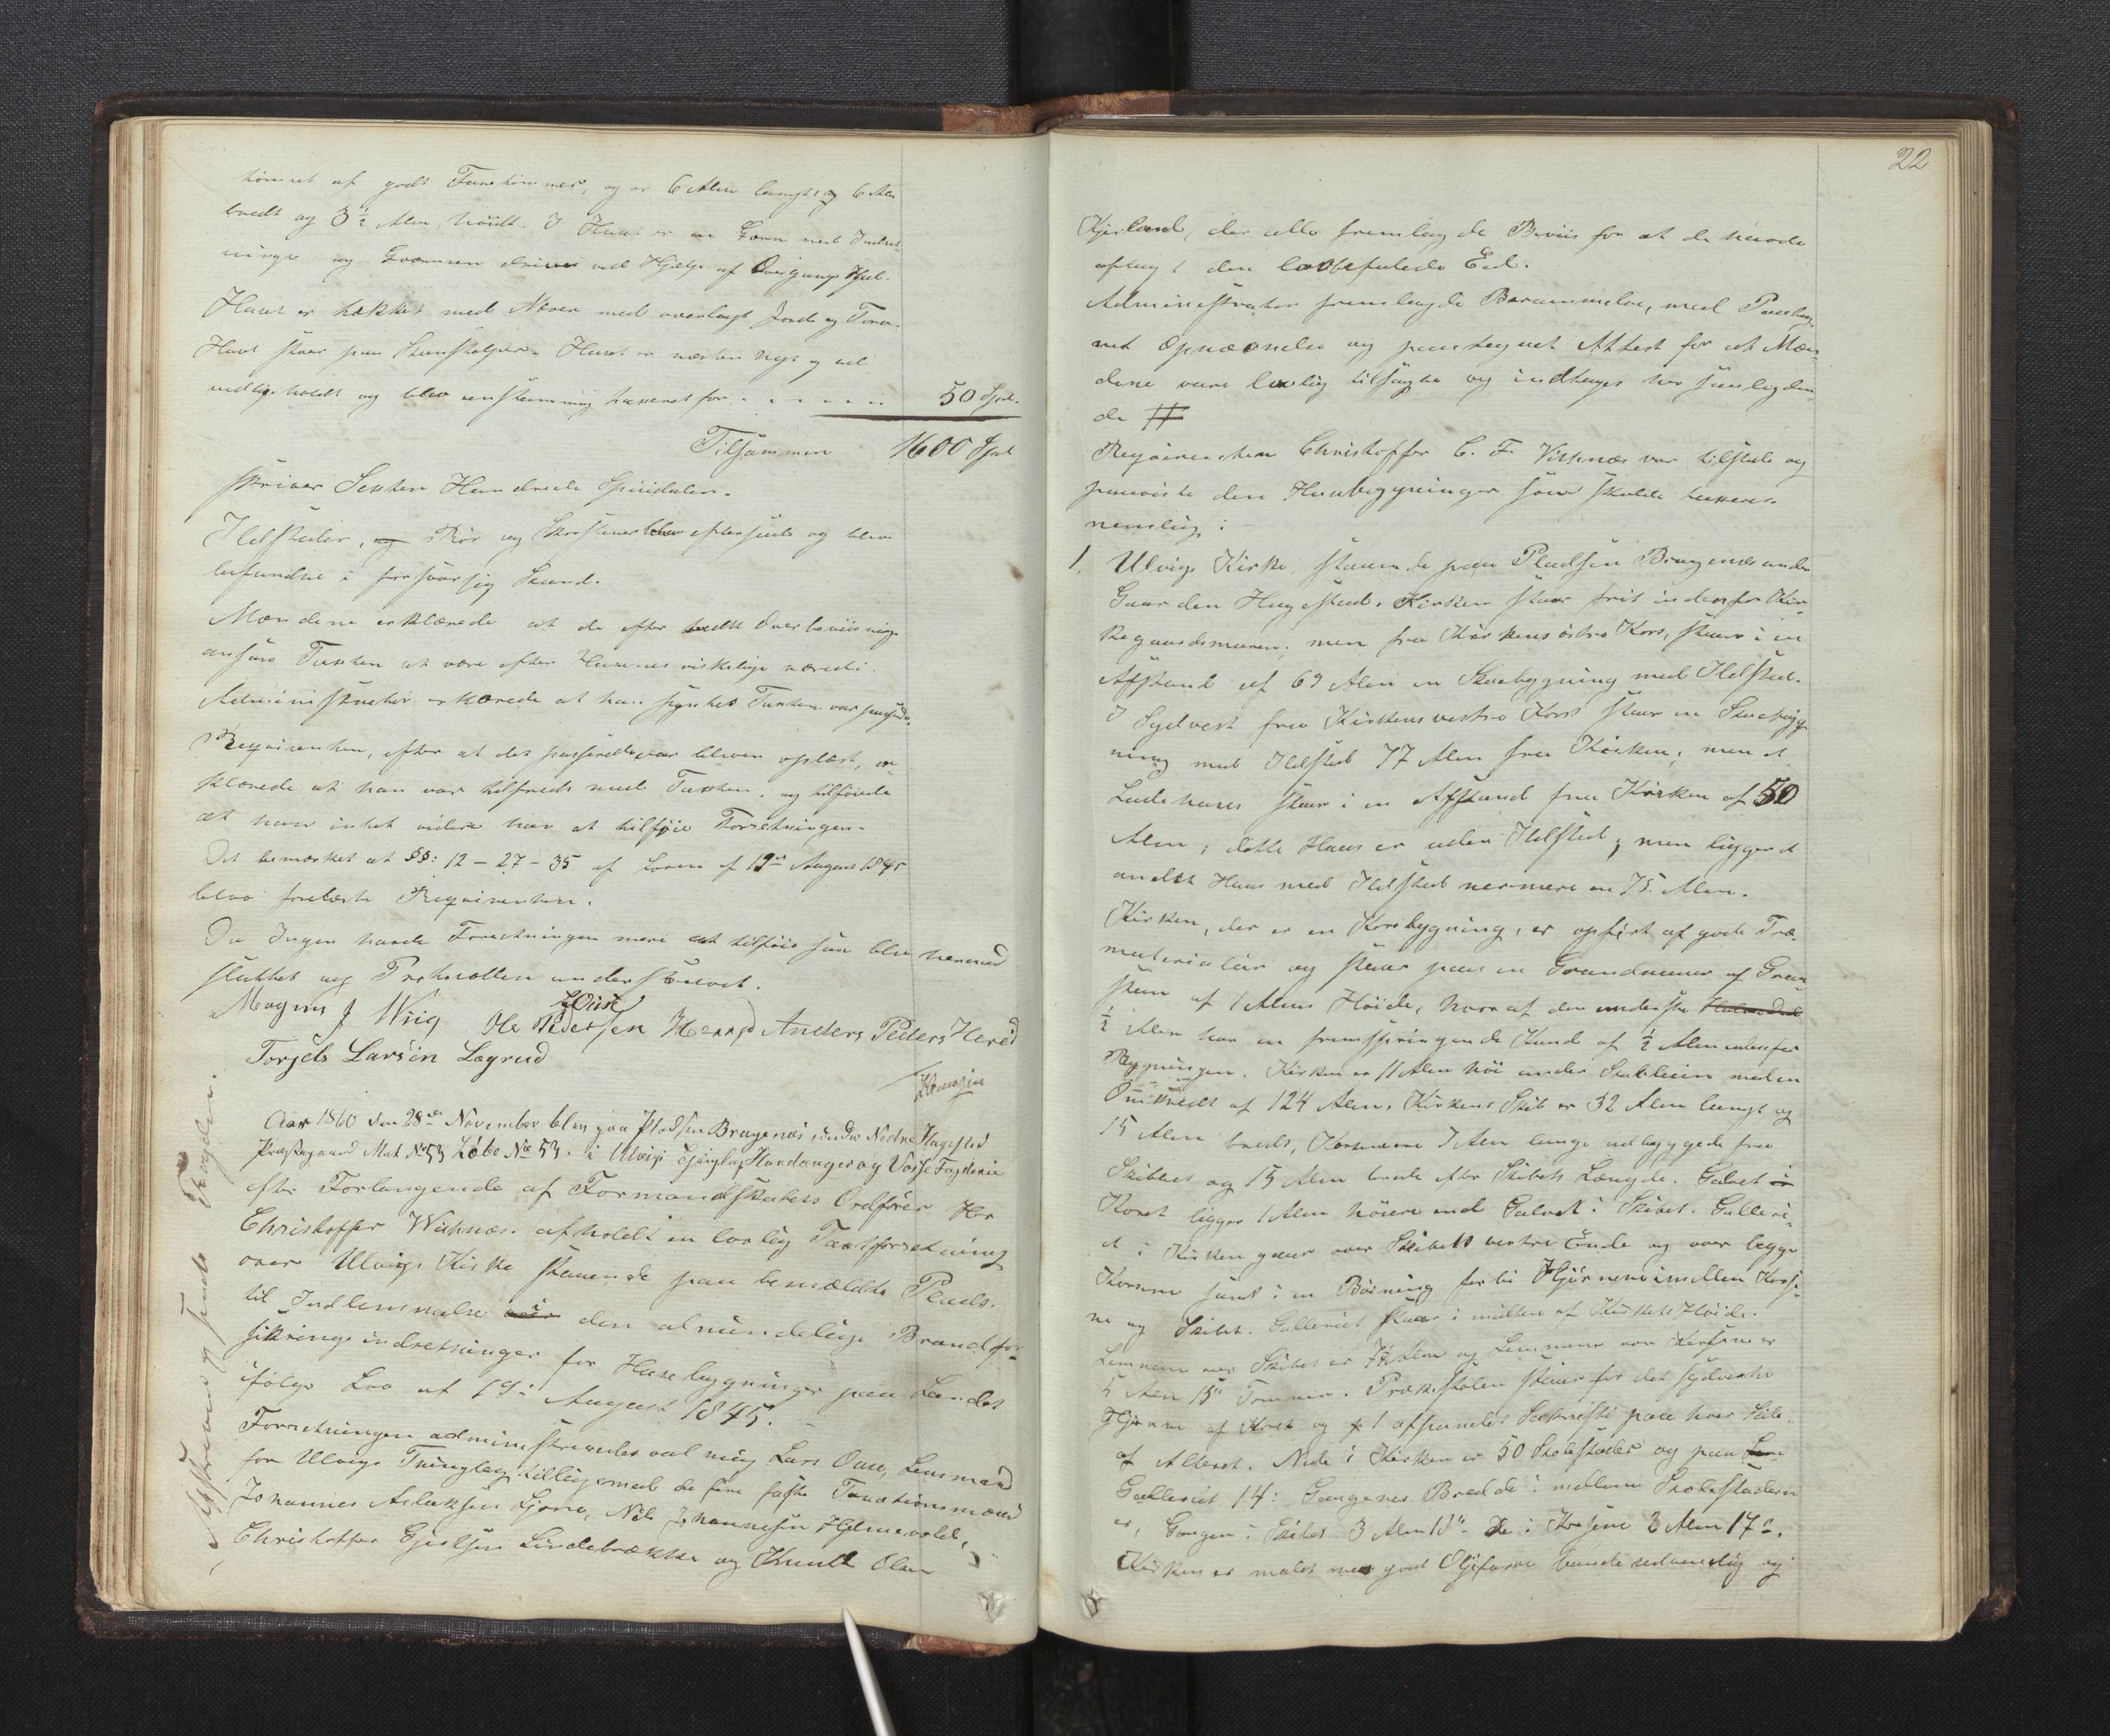 tömret af godt Furutömmer, og er 6 Alen langt og 6 Alen
bredt og 3 1/2 Alen höidt. I Huset er en Qværn med Indret-
ninge og Qværnen drives ved Hjælp af Hjul.
Huset er tækket med Næver med overlagt Jord og Torv.
Huset staar paa Steenstolper. Huset er næsten nyt og vel
vedligeholdt og blev enstemmig taxeret for . . . . . . 50 Spd.
Tilsammen 1600 Spd
skriver Sexten Hundrede Speciedaler.
Ildstæder, og Rör og Skorstene blev efterseede og blev
befundne i forsvarlig Stand.
Mændene erklærede at de efter bedste Overbeviisning
ansaae Taxten at være efter Husenes virkelige værdi.
Administrator erklærede at han syntes Taxten var passende.
Reqvirenten, efter at det passerede var bleven oplæst, er-
klærede at han var tilfreds med Taxten, og tilföiede
at han intet videre har at tilföie Forretningen.
Det bemærkes at §§: 12 - 27 - 35 af Loven af 19de August 1845
blev forelæste Reqvirenten.
Da Ingen havde Forretningen mere at tilföie saa blev hermed
sluttet og Protocollen underskrevet.
L Ouse
Magnus J Wiig Ole Pedersen Hereid Anders Peders Hereid
Torjels Larsen Lægreid
Aar 1860 den 28de November blev paa Pladsen Bragenæs under Nedre Hagestad
Præstegaard Mat No 53 Löbe No 53. i Ulvigs Thinglag Hardanger og Vosse Fogderie
efter Forlangende af Formandskabets Ordförer Hr
Christoffer Wiknæs. afholdt en lovlig Taxtforretning
over Ulvigs Kirke staaende paa bemældte Plads.
til Indlemmelse i den almindelige Brandfor-
sikrings indretninger for Huusbygninger paa Landet
ifölge Lov af 19de August 1845.
Forretningen administreredes ved mig Lars Ouse, Lensmand
for Ulvigs Thinglag tilligemed de fire faste Taxationsmænd
Johannes Aslaksen Lione, Nils Johannesen Hjelmevold,
Christoffer Gjertsen Lindebrække og Knud Olsen
22
Kjerland, der alle fremlagde Beviis for at de havde
aflagt den lovbefalede Eed.
Administrator fremlagde Berammelse, med Paateg-
net Opnævnelse og paategnet Attest for at Mæn-
dene vare lovlig tilsagte og indtages her saalyden-
de #
Reqvirenten Christoffer C. F. Wiknæs var tilstede og
paaviste den Huusbygninger som skulde taxeres.
nemlig:
1. Ulvigs Kirke, staaende paa Pladsen Bragenæs under
Gaarden Hagestad. Kirken staar frit indenfor Kir-
kegaardsmuren; men fra Kirkens östre Kors, staar i en
Afstand af 69 Alen en Stuebygning med Ildsted.
I Sydvest fra Kirkens vestre Kors staar en Stuebyg-
ning med Ildsted 77 Alen fra Kirken; men et
Ladehuus staar i en Afstand fra Kirken af 50
Alen; dette Huus er uden Ildsted; men ligger et
andet Huus med Ildsted nermere en 75 Alen.
Kirken, der er en Korsbygning, er opfört af gode Træ-
materialier og staar paa en Grundmuur af Graa-
steen af 1 Alens Höide, hvoraf den underste
1/2 Alen har en fremspringende Kand af 1/2 Alen udenfor
Bygningen. Kirken er 11 Alen höi under med en
Omkreds af 124 Alen. Kirkens Skib er 32 Alen langt og
15 Alen bredt, Korsene 7 Alen lange udbyggede fra
Skibet og 15 Alen brede efter Skibets Længde. Gulvet i
Koret ligger 1 Alen höiere end Gulvet i Skibet. Galleri-
et i Kirken gaar over Skibets vestre Ende og over begge
Korsene samt i en Böining forbi Hjörnene imellem Korse-
ne og Skibet. Galleriet staar i midten af Kirkens Höide.
Lemmen over Skibet er Alen og Lemmene over Korsene er
5 Alen 15" Tommer. Prækestolen staar for det sydvestre
Hjörne af Koret og 1 afpanelet Sakristi paa hver Side
af Alteret. Nede i Kirken er 50 Stolestader og paa
Galleriet 14: Gangenes Bredde i mellem Stolestaderne
er, Gangen i Skibet 3 Alen 13" De i Korsene 2 Alen 17".
Kirken er malet med god Oljefarve baade udvendig og